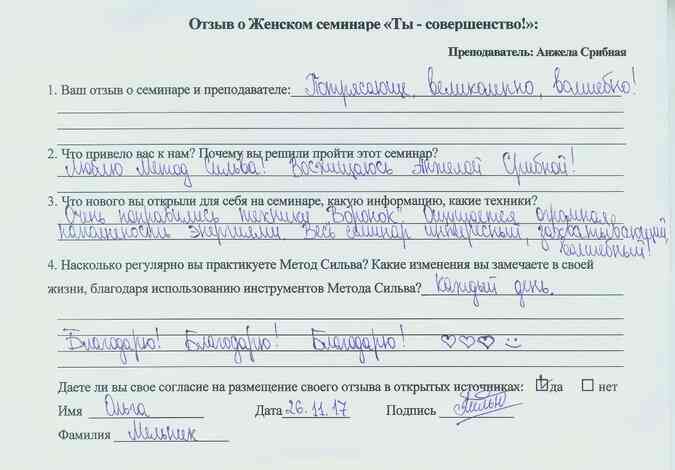 Отзыв о Женском семинаре «Ты - совершенство!»:
Преподаватель: Анжела Срибная
1. Ваш отзыв о семинаре и преподавателе: Потрясающе, великолепно, волшебно!
2. Что привело вас к нам? Почему вы решили пройти этот семинар?
Люблю Метод Сильва! Восхищаюсь Анжелой Срибной!
3. Что нового вы открыли для себя на семинаре, какую информацию, какие техники?
Очень понравились техники "Воронок" Ощущается огромная
наполненность энергиями. Весь семинар интересный, захватывающий,
волшебный!
4. Насколько регулярно вы практикуете Метод Сильва? Какие изменения вы замечаете в своей
жизни, благодаря использованию инструментов Метода Сильва? Каждый день.
Благодарю! Благодарю! Благодарю! ♡♡♡ :)
Даете ли вы свое согласие на размещение своего отзыва в открытых источниках: да нет
Имя Ольга Дата 26.11.17 Подпись
Фамилия Мельник